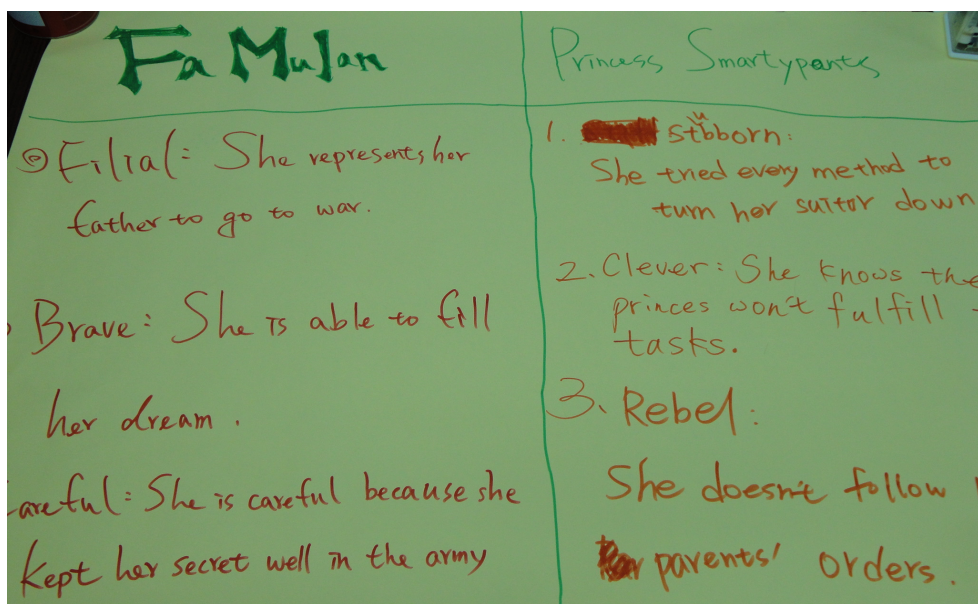 Fa Mulan
Filial: She represents her
father to go to war.
Brave: She is able to fill
her dream.
Careful: She is careful because she
kept her secret well in the army
Princess Smartypants
1. stubborn:
She tried every method to
turn her suitor down
2. Clever: She knows the
princes won't fulfill
tasks.
3. Rebel:
She doesn't follow
parents' orders.